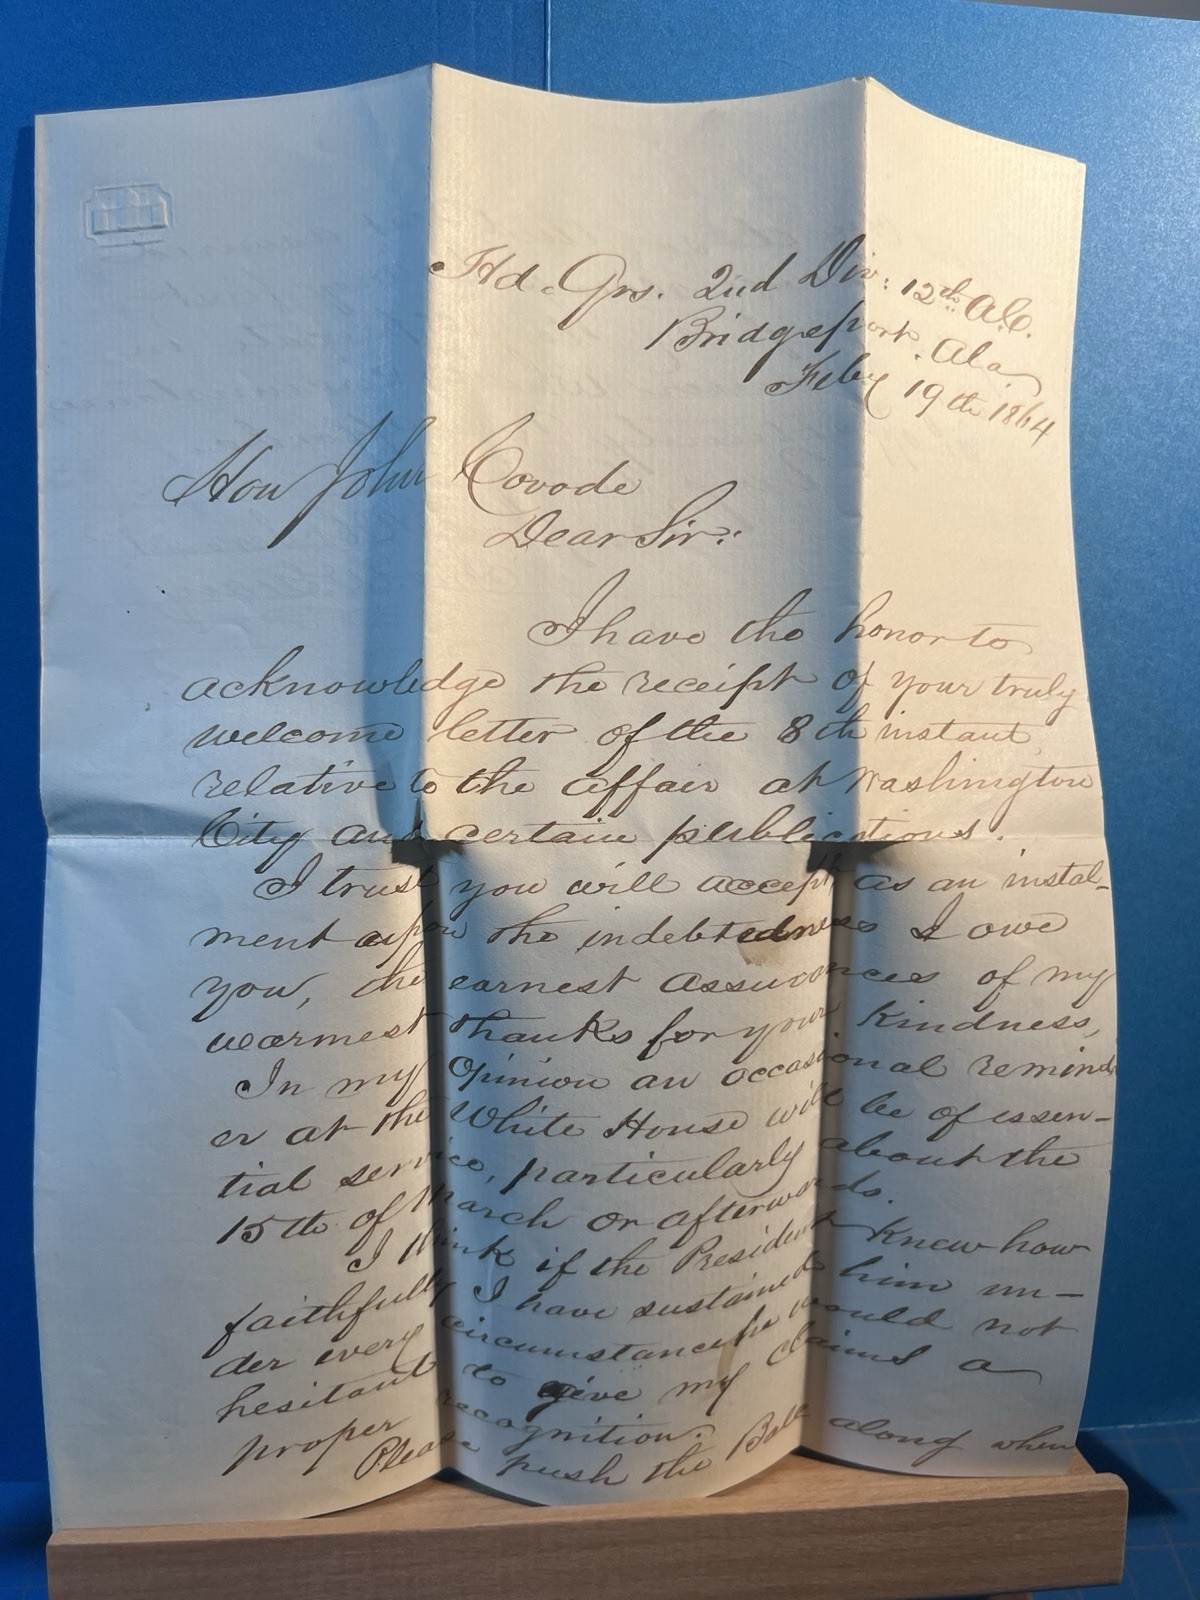 Hd. Qrs. 2nd Div. 12th A.C.
Bridgeport. Ala
Feby 19th 1864
Hon John Covode
Dear Sir:
I have the honor to
acknowledge the receipt of your truly
welcome letter of the 8th instant,
relative to the affair at Washington
City and certain publications.
I trust you will accept as an instal-
ment upon the indebtedness I owe
you, the earnest assurances of my
warmest thanks for your kindness,
In my opinion an occasional remind
er at the White House will be of essen-
tial service, particularly about the
15th of March or afterwards.
I think if the President knew how
faithfully I have sustained him un-
der every circumstance he would not
hesitant to give my claims a
proper recognition.
Please push the Ball along when